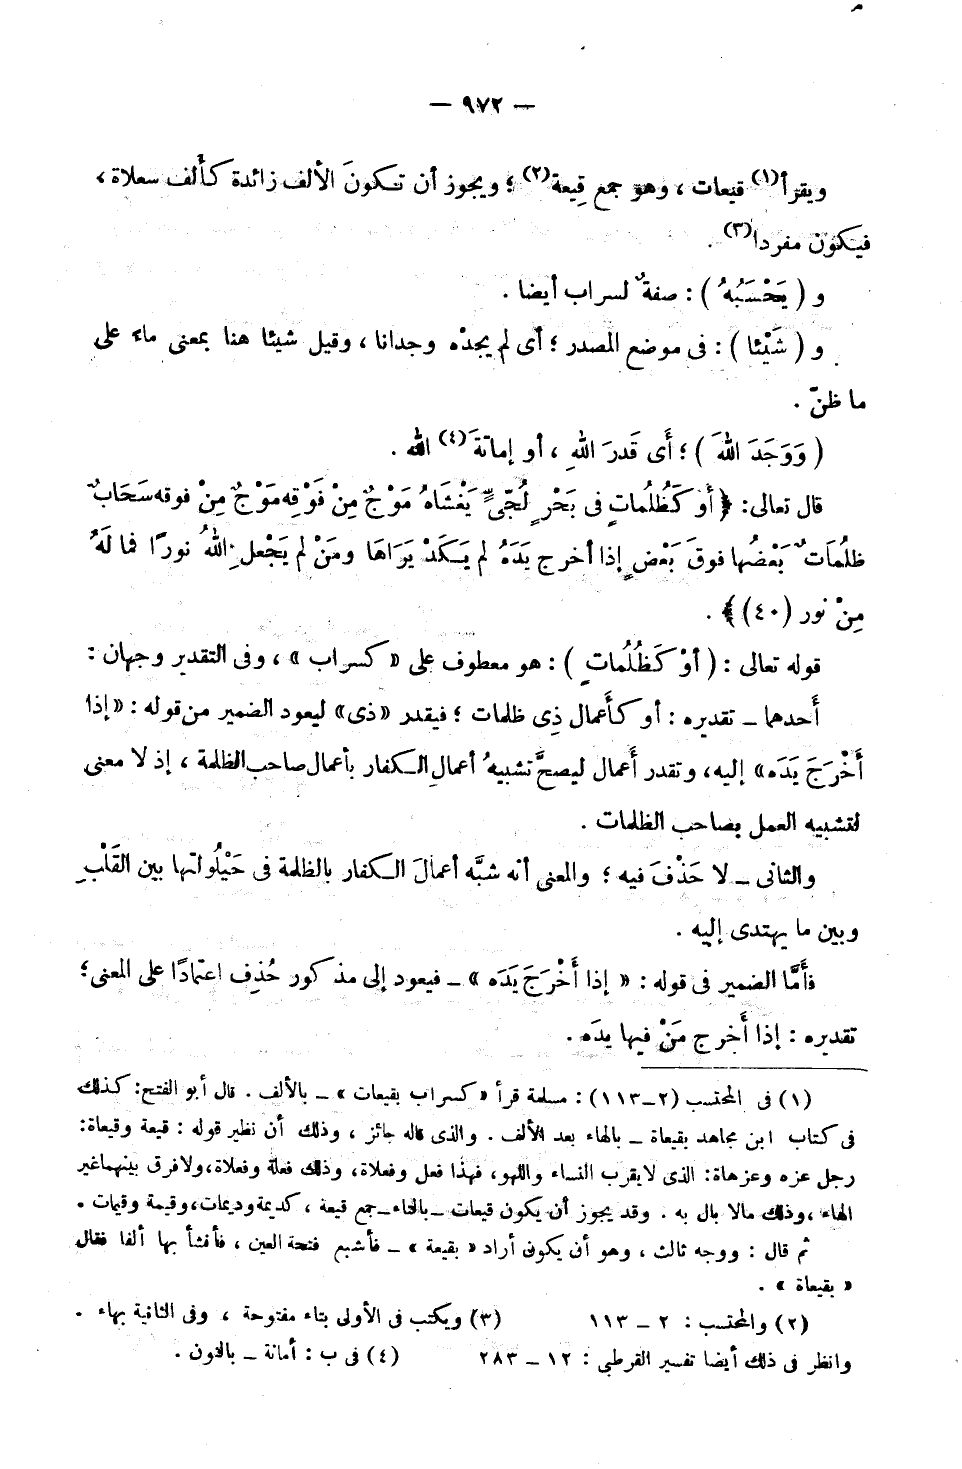 — ٩٧٢ —
ويقرأ(١) قيعات ، وهو جمع قِيعة(٢) ؛ ويجوز أن تكونَ الألف زائدة كألف سعلاة ،
فيكون مفردا(٣) .
و ( يَحْسَبُهُ ) : صفةٌ لسراب أيضا .
و ( شَيْئا ) : فى موضع المصدر ؛ أى لم يجدْه وجدانا ، وقيل شيئا هنا بمعنى ماء على
ما ظنّ .
( وَوَجَدَ اللّٰهَ ) ؛ أَى قَدرَ اللّٰهِ ، أو إماتةَ(٤) اللّٰه .
قال تعالى: ﴿ أو كَظُلُماتٍ فى بَحْرٍ لُجّىٍّ يَغْشَاهُ مَوْجٌ مِنْ فَوْقِهِ مَوْجٌ مِنْ فوقه سَحَابٌ
ظلُمَاتٌ بَعْضُها فوقَ بَعْضٍ إذا أخرج يَدَهُ لم يَكَدْ يَرَاهَا ومَنْ لم يَجْعلِ اللّٰهُ نورًا فما لَهُ
مِنْ نور (٤٠) ﴾ .
قوله تعالى : ( أوْ كَظُلُماتٍ ) : هو معطوف على « كسراب » ، وفى التقدير وجهان :
أَحدهما ــ تقديره : أو كأَعمال ذِى ظلمات ؛ فيقدر « ذى » ليعود الضمير من قوله : « إذا
أَخْرَجَ يَدَه » إليه، وتقدر أَعمال ليصحَّ تشبيهُ أعمالِ الكفار بأعمال صاحب الظلمة ، إذ لا معنى
لتشبيه العمل بصاحب الظلمات .
والثانى ــ لا حَذْفَ فيه ؛ والمعنى أنه شبَّه أعمالَ الكفار بالظلمة فى حَيْلُولتها بين القَلْبِ
وبين ما يهتدى إليه .
فأَمَّا الضمير فى قوله : « إذا أَخْرَجَ يَدَه » ــ فيعود إلى مذكور حُذِف اعتمادًا على المعنى ؛
تقديره : إذا أَخرج مَنْ فيها يدَه .
(١) فى المحتسب (٢ــ١١٣) : مسلمة قرأ « كسراب بقيعات » ــ بالألف . قال أبو الفتح: كذلك
فى كتاب ابن مجاهد بقيعاة ــ بالهاء بعد الألف . والذى قاله جائز ، وذلك أن نظير قوله : قيعة وقيعاة:
رجل عزه وعزهاة: الذى لا يقرب النساء واللهو، فهذا فعل وفعلاة، وذلك فعلة وفعلاة، ولا فرق بينهما غير
الهاء ، وذلك مالا بال به . وقد يجوز أن يكون قيعات ــ بالتاء ــ جمع قيعة ، كديمة وديمات، وقيمة وقيمات .
ثم قال : ووجه ثالث ، وهو أن يكون أراد « بقيعة » ــ فأشبع فتحة العين ، فأنشأ بها ألفا فقال
« بقيعاة » .
(٢) والمحتسب : ٢ ــ ١١٣ (٣) ويكتب فى الأولى بتاء مفتوحة ، وفى الثانية بهاء .
وانظر فى ذلك أيضا تفسير القرطبى : ١٢ ــ ٢٨٣ (٤) فى ب : أمانة ــ بالنون .